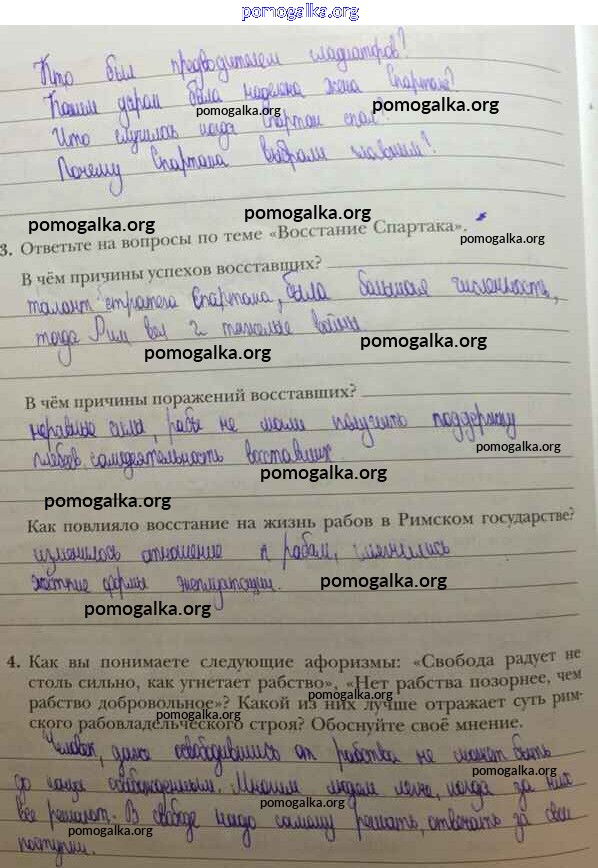 pomogalka.org
Кто был предводителем гладиаторов?
Каким даром была наделена жена Спартака?
pomogalka.org pomogalka.org
Что случилось когда Спартак спал?
Почему Спартака выбрали главным?
pomogalka.org pomogalka.org
3. Ответьте на вопросы по теме «Восстание Спартака».
pomogalka.org
В чём причины успехов восставших?
талант стратега Спартака, была большая численность,
тогда Рим вел 2 тяжелые войны
pomogalka.org pomogalka.org
В чём причины поражений восставших?
неравные силы, рабы не могли получить поддержку
pomogalka.org
плебеев, самодеятельность восставших.
pomogalka.org
pomogalka.org
Как повлияло восстание на жизнь рабов в Римском государстве?
изменилось отношение к рабам, смягчились
жесткие формы эксплуатации.
pomogalka.org
pomogalka.org
4. Как вы понимаете следующие афоризмы: «Свобода радует не
столь сильно, как угнетает рабство», «Нет рабства позорнее, чем
рабство добровольное»? Какой из них лучше отражает суть рим-
pomogalka.org
ского рабовладельческого строя? Обоснуйте своё мнение.
Человек, даже освободившись от рабства не может быть
pomogalka.org
до конца освобожденным. Многим людям легче, когда за них
pomogalka.org
все решают. В свободе надо самому решать, отвечать за свои
pomogalka.org
поступки.